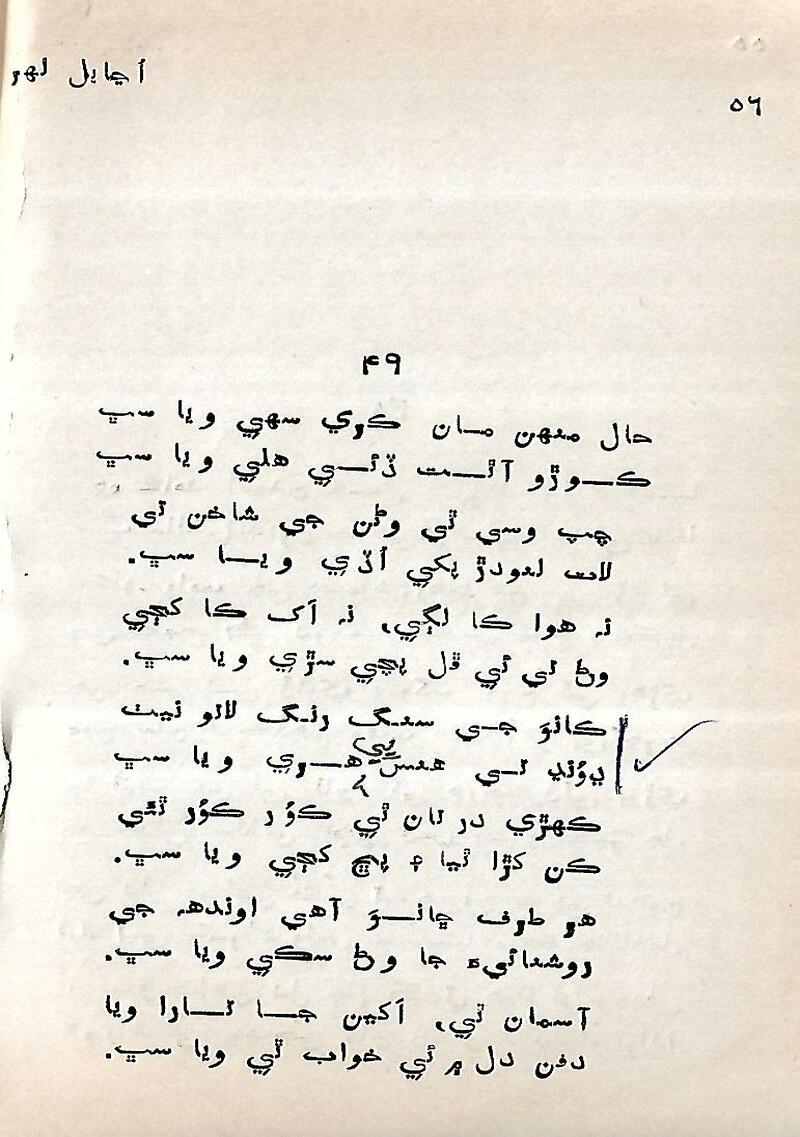 اڃايل لهر
٥٦
۴۹
حال منهن مان ڪري سهي ويا سڀ
ڪوڙو آٿت ڏئي هلي ويا سڀ
چپ وسي ٿي وڻن جي شاخن تي
لات لنودڙ پکي اُڏي ويا سڀ.
نہ هوا ڪا لڳي، نہ اَک ڪا کڄي
وڻ تي ئي ڦل پچي سڙي ويا سڀ.
ڪانوَ جي سنگ رنگ لاتو نيٺ
ڍوُنڍ تي هنس پي هري ويا سڀ.
ڪهڙي در تان ٿي ڪوُر ڪوُر ٿئي
ڪن کڙا ٿيا ۽ پڇ کڄي ويا سڀ.
هر طرف ڇانوَ آهي اونده جي
روشنائيءَ جا وڻ سڪي ويا سڀ.
آسمان تي، اَکين جا تارا ويا
دفن دل ۾ ئي خواب ٿي ويا سڀ.